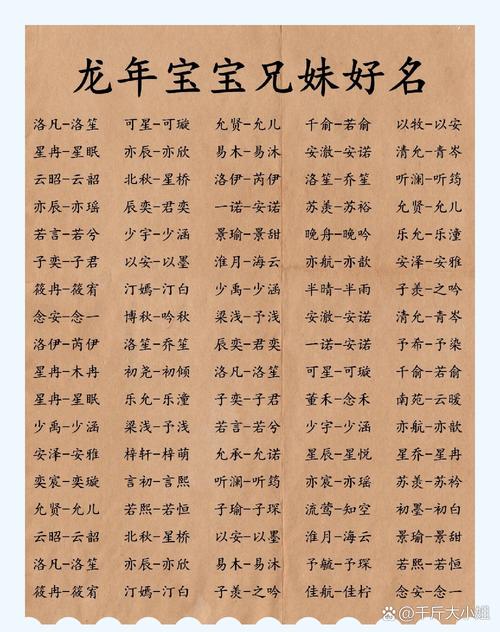 龙年宝宝兄妹好名
洛凡-洛笙 可星-可璇 允贤-允儿 千俞-若俞 以牧-以安
星冉-星眠 亦辰-亦欣 易木-易沐 安澈-安诺 清允-青岑
云昭-云韶 北秋-星桥 洛伊-芮伊 洛笙-乔笙 听澜-听筠
亦辰-亦瑶 辰奕-君奕 一诺-安诺 苏羡-苏裕 允贤-允儿
若言-若兮 少宇-少涵 景瑜-景甜 晚舟-晚吟 乐允-乐潼
子奕-子君 以安-以墨 淮月-海云 亦航-亦歆 安泽-安雅
筱冉-筱宥 汀嫣-汀白 少禹-少涵 半晴-半雨 子羡-之吟
念安-念一 博秋-吟秋 梁浅-予浅 安澈-安诺 清允-青岑
洛伊-芮伊 洛笙-乔笙 辰奕-君奕 一诺-安诺 予希-予染
星冉-木冉 初尧-初倾 洛凡-洛笙 可星-可璇 千俞-若俞
星冉-星眠 乐允-乐潼 子奕-子君 董禾-念禾 南苑-云暖
少禹-少涵 梁浅-予浅 若言-若兮 少宇-少涵 亦航-亦歆
安泽-安雅 梓轩-梓萌 允承-允诺 星辰-星悦 星乔-星冉
奕宸-奕璇 言初-言熙 听澜-听筠 亦宸-亦瑶 苏羡-苏裕
允贤-允儿 若熙-若恒 子瑜-子琛 流莺-知空 初墨-初白
云昭-云韶 北秋-星桥 以安-以墨 淮月-海云 景瑜-景甜
洛凡-洛笙 亦辰-亦欣 易木-易沐 予毓-予琛 若熙-若恒
筱冉-筱宥 汀嫣-汀白 子羡-之吟 佳航-佳柠 念安-念一
千斤大小姐